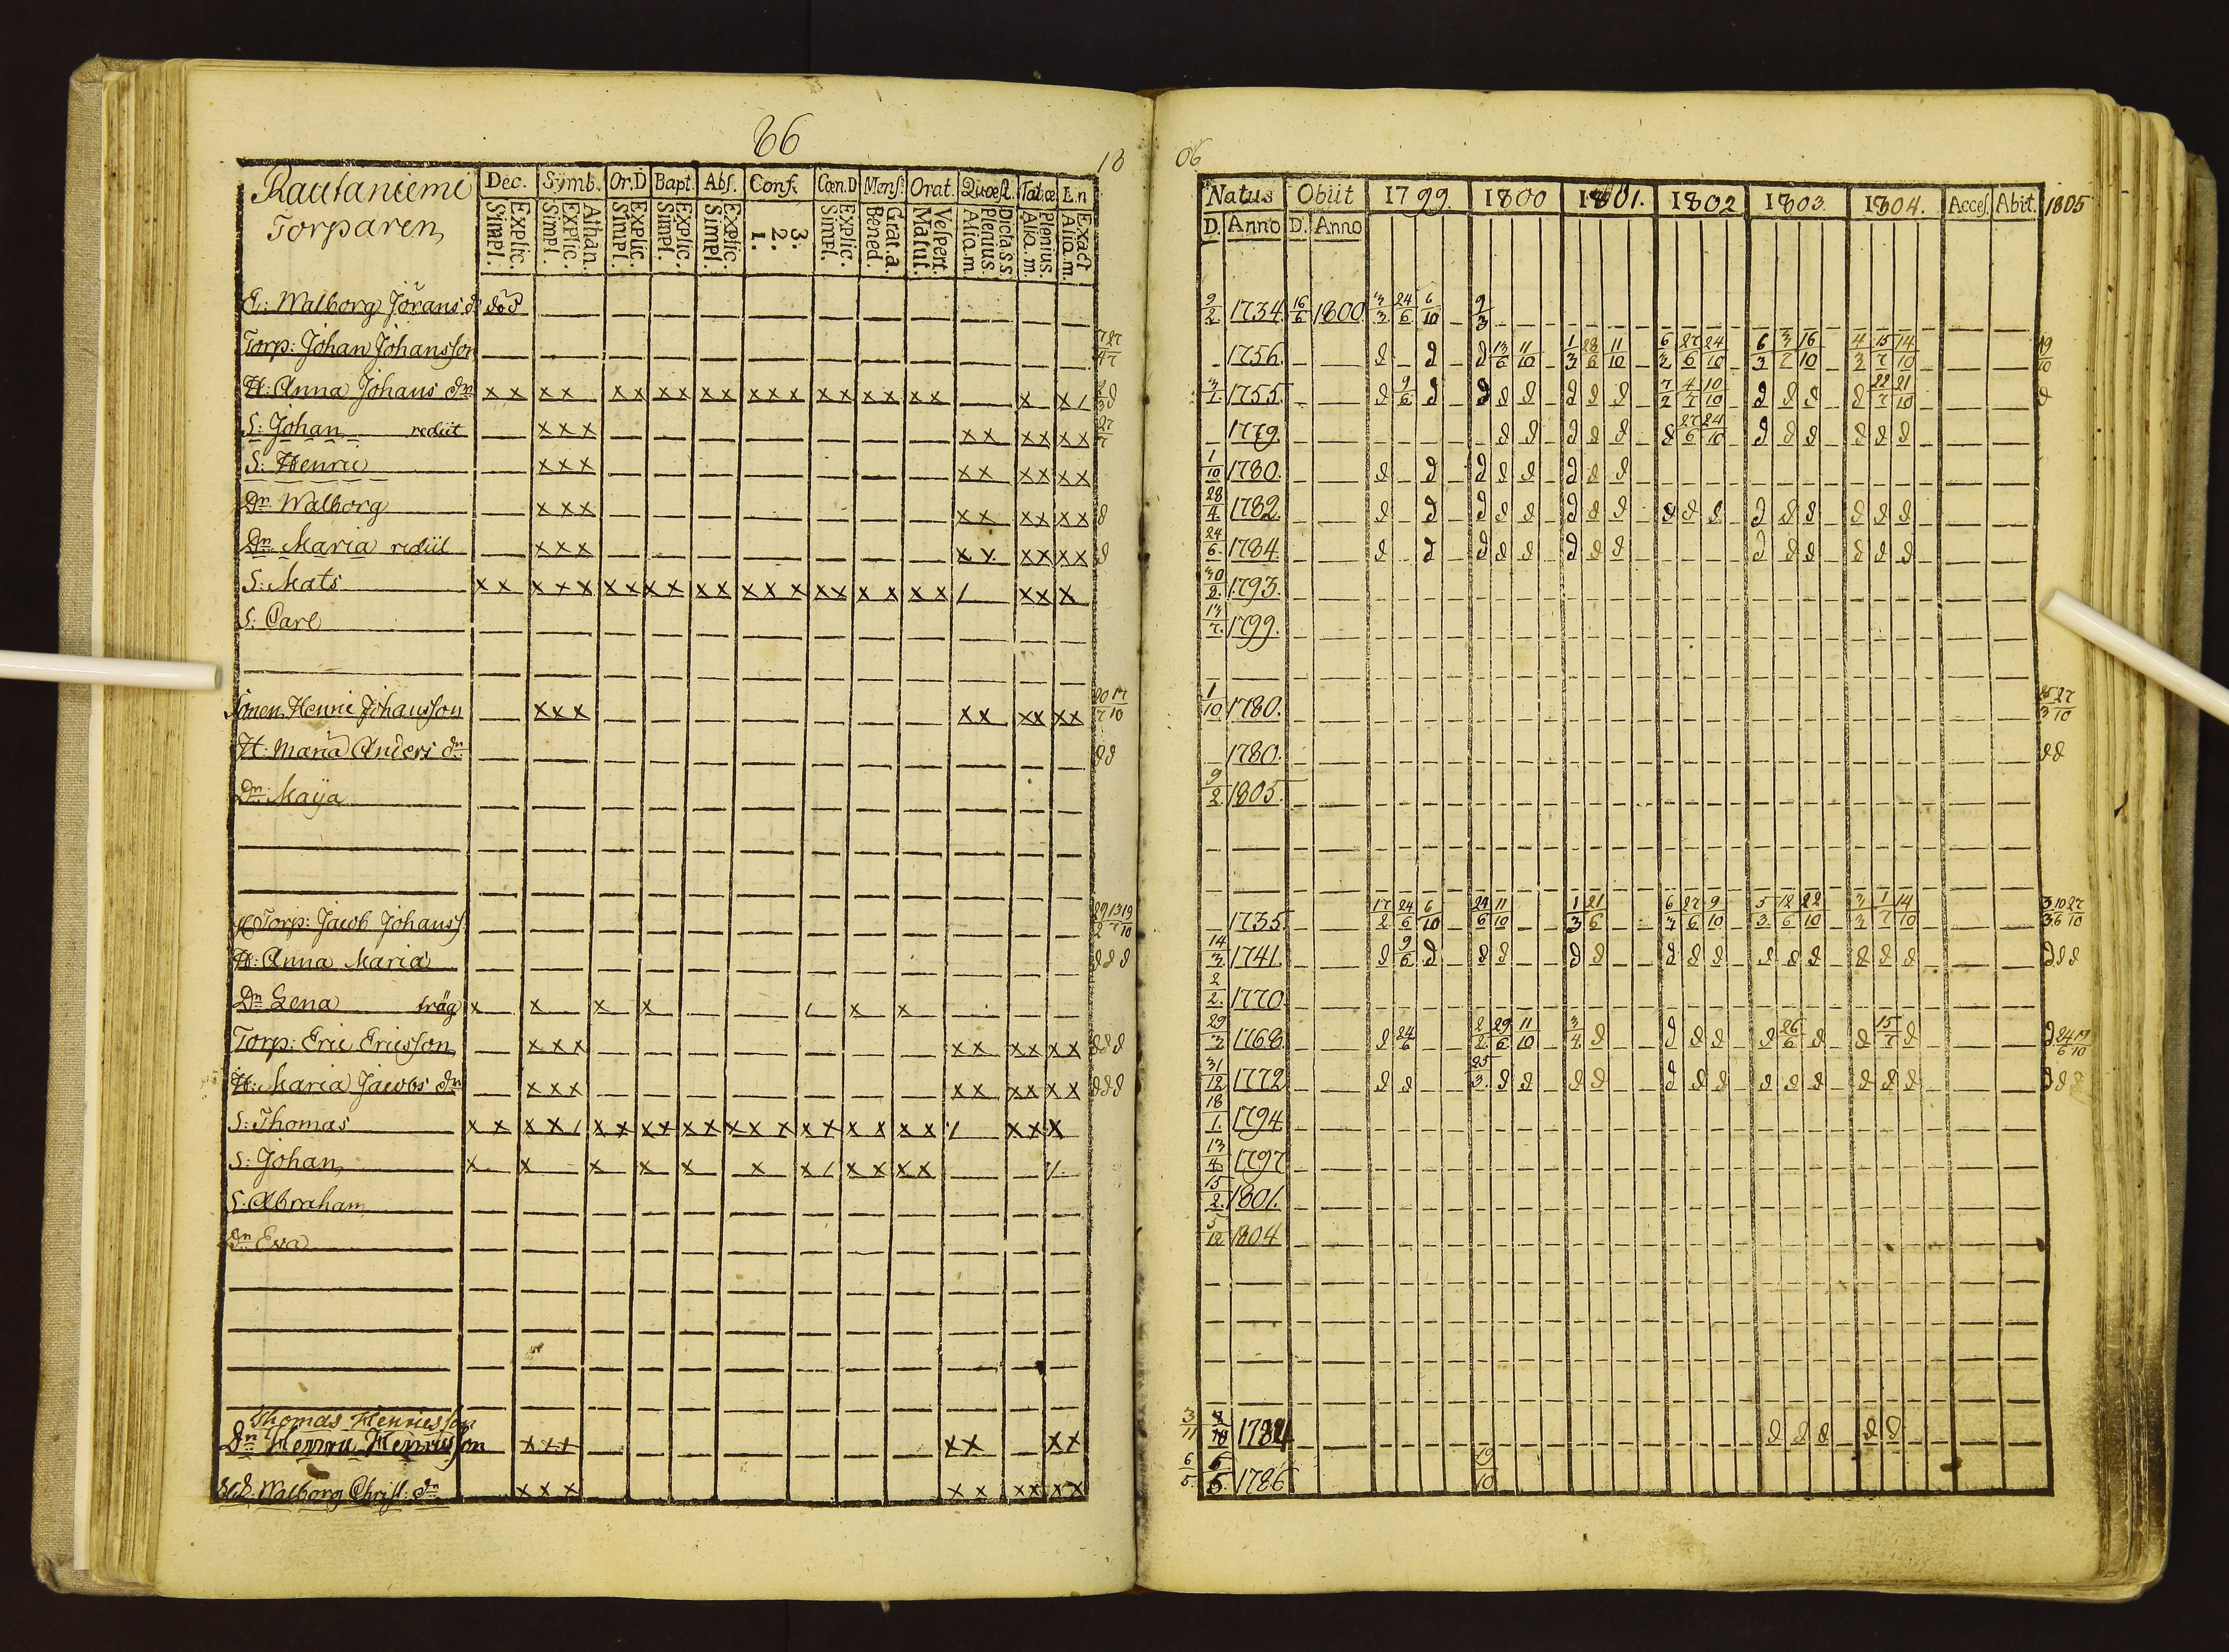 66
18
Rautaniemi
Torparen
Dec. Symb. Or.D Bapt. Abs. Conf. Cœn.D Mens. Orat. Quæst. Tab.œ
Simpl. Explic. Simpl. Explic. Athan. Simpl. Explic. Simpl. Explic. Simpl. Explic. 1. 2. 3. Simpl. Explic. Bened. Grat.a. Matut. Vespert. Aliq.m. Plenius. Dicta.s.s. Aliq.m. Plenius. Aliq.m. Exact
E: Walborg Jörans d:
Torp: Johan Johansson
H: Anna Johans dn
S: Johan rediit
S: Henric
Dn Walborg
Dn Maria rediit
S: Mats
S: Carl
Sonen Henric Johansson
H: Maria Anders dn
Dn Maija
Torp: Jacob Johanss.
H: Anna Maria
Dn Lena
Torp: Eric Ericsson
H: Maria Jacobs dn
S: Thomas
S: Johan
S: Abraham
dn Eva
Thomas Henricsson
Dn Henric Henricsson
Walborg Christ: dn
06
Natus Obiit 1799. 1800 1801. 1802 1803. 1804. Acces. Abit. 1805
D. Anno D. Anno
9/2 1734. 16/6 1800. 3/3 24/6 6/10 9/3
1756. d d d 13/6 11/10 1/3 28/6 11/10 6/3 27/6 24/10 6/3 3/7 16/10 4/3 15/7 14/10 19/10
3/7 1755. d 9/6 d d d d d d d 7/2 4/7 10/10 d d d d 22/7 21/10 d
1779 d d d d d d 27/6 24/10 d d d d d d
1/10 1780. d d d d d d d d
28/4 1782. d d d d d d d d d d d d d d d d d
24/6 1784. d d d d d d d d d d d d d d
30/8 1793.
13/7 1799.
1/10 1780. 27/10
1780. d d
9/2 1805.
1735 17/2 24/6 6/10 29/6 11/10 1/3 21/6 6/3 27/6 9/10 5/3 12/6 22/10 3/3 1/7 14/10 3/3 10/6 27/10
14/3 1741. d 9/6 d d d d d d d d d d d d d d d d d
2/2. 1770
29/3 1768. d 24/6 2/2 29/6 11/10 3/4 d d d d d 26/6 d d 15/7 d d 24/6 19/10
31/12 1772 d d 25/3 d d d d d d d d d d d d d d d d
18/1. 1794
13/4 1797
15/2. 1801.
5/12 1804
3/11 8/10 1784 d d d d d
6/5. 6/5. 1786 19/10